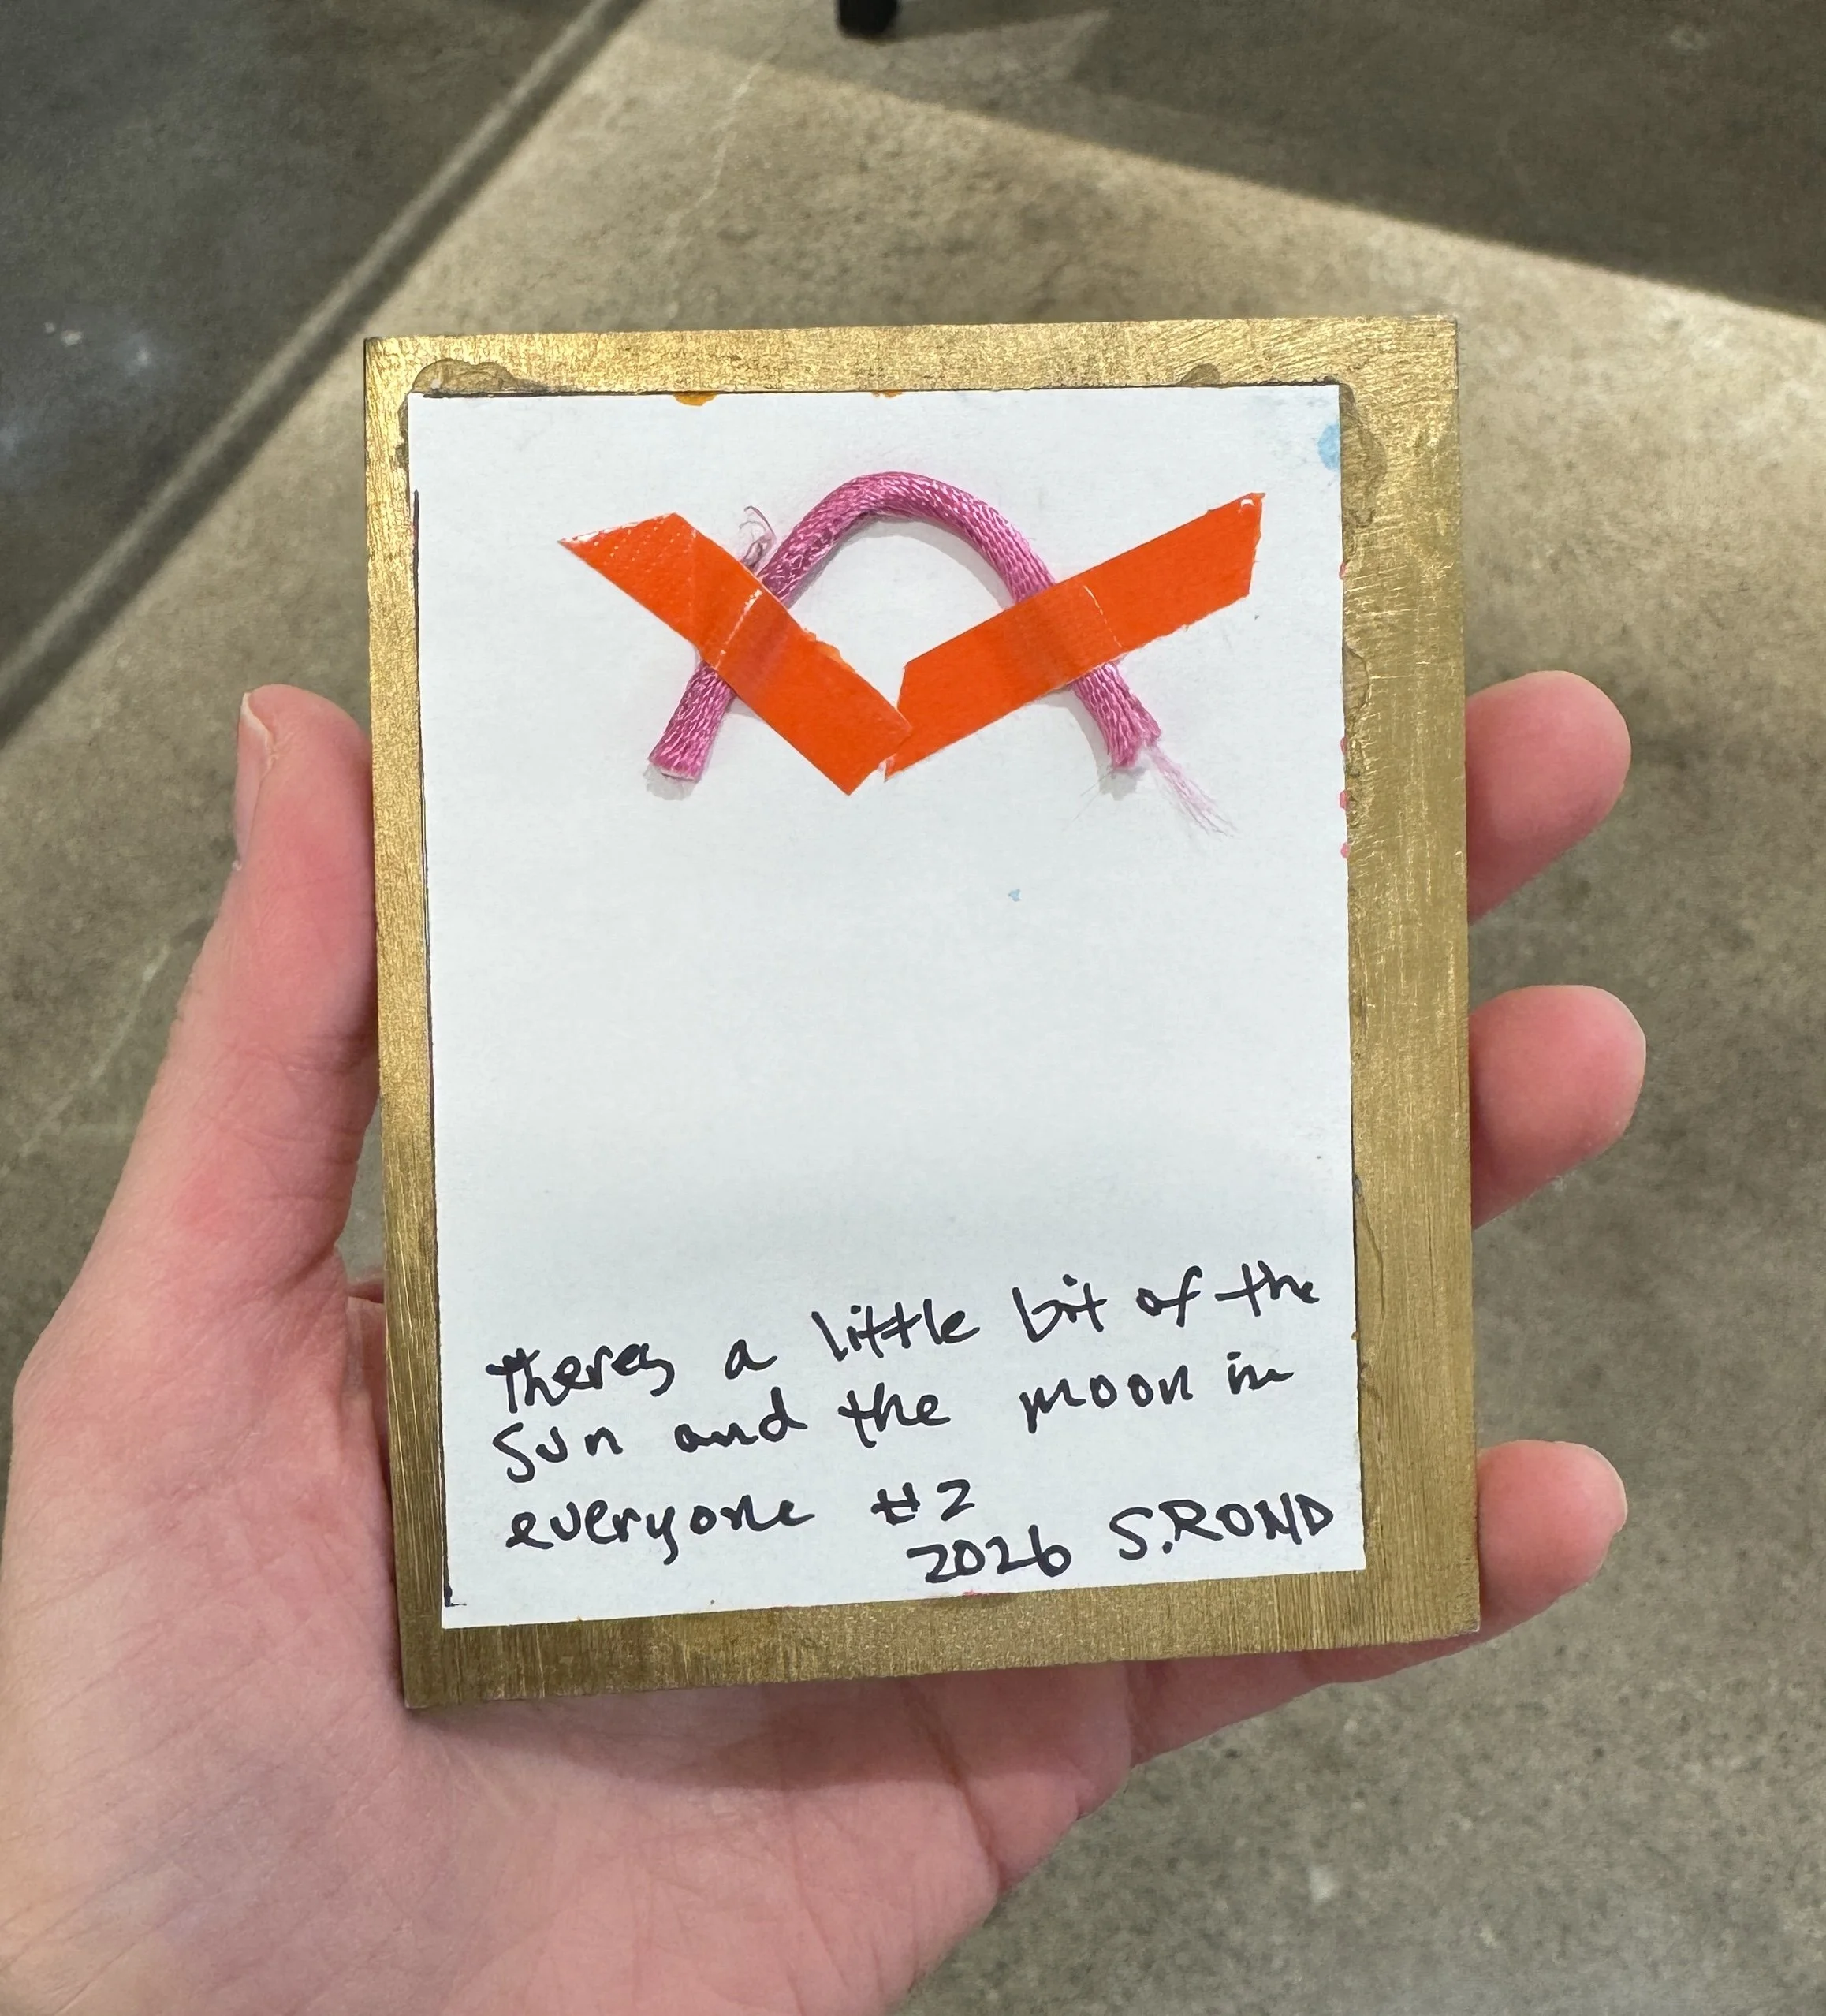 theres a little bit of the
sun and the moon in
everyone #2
2026 S.ROND